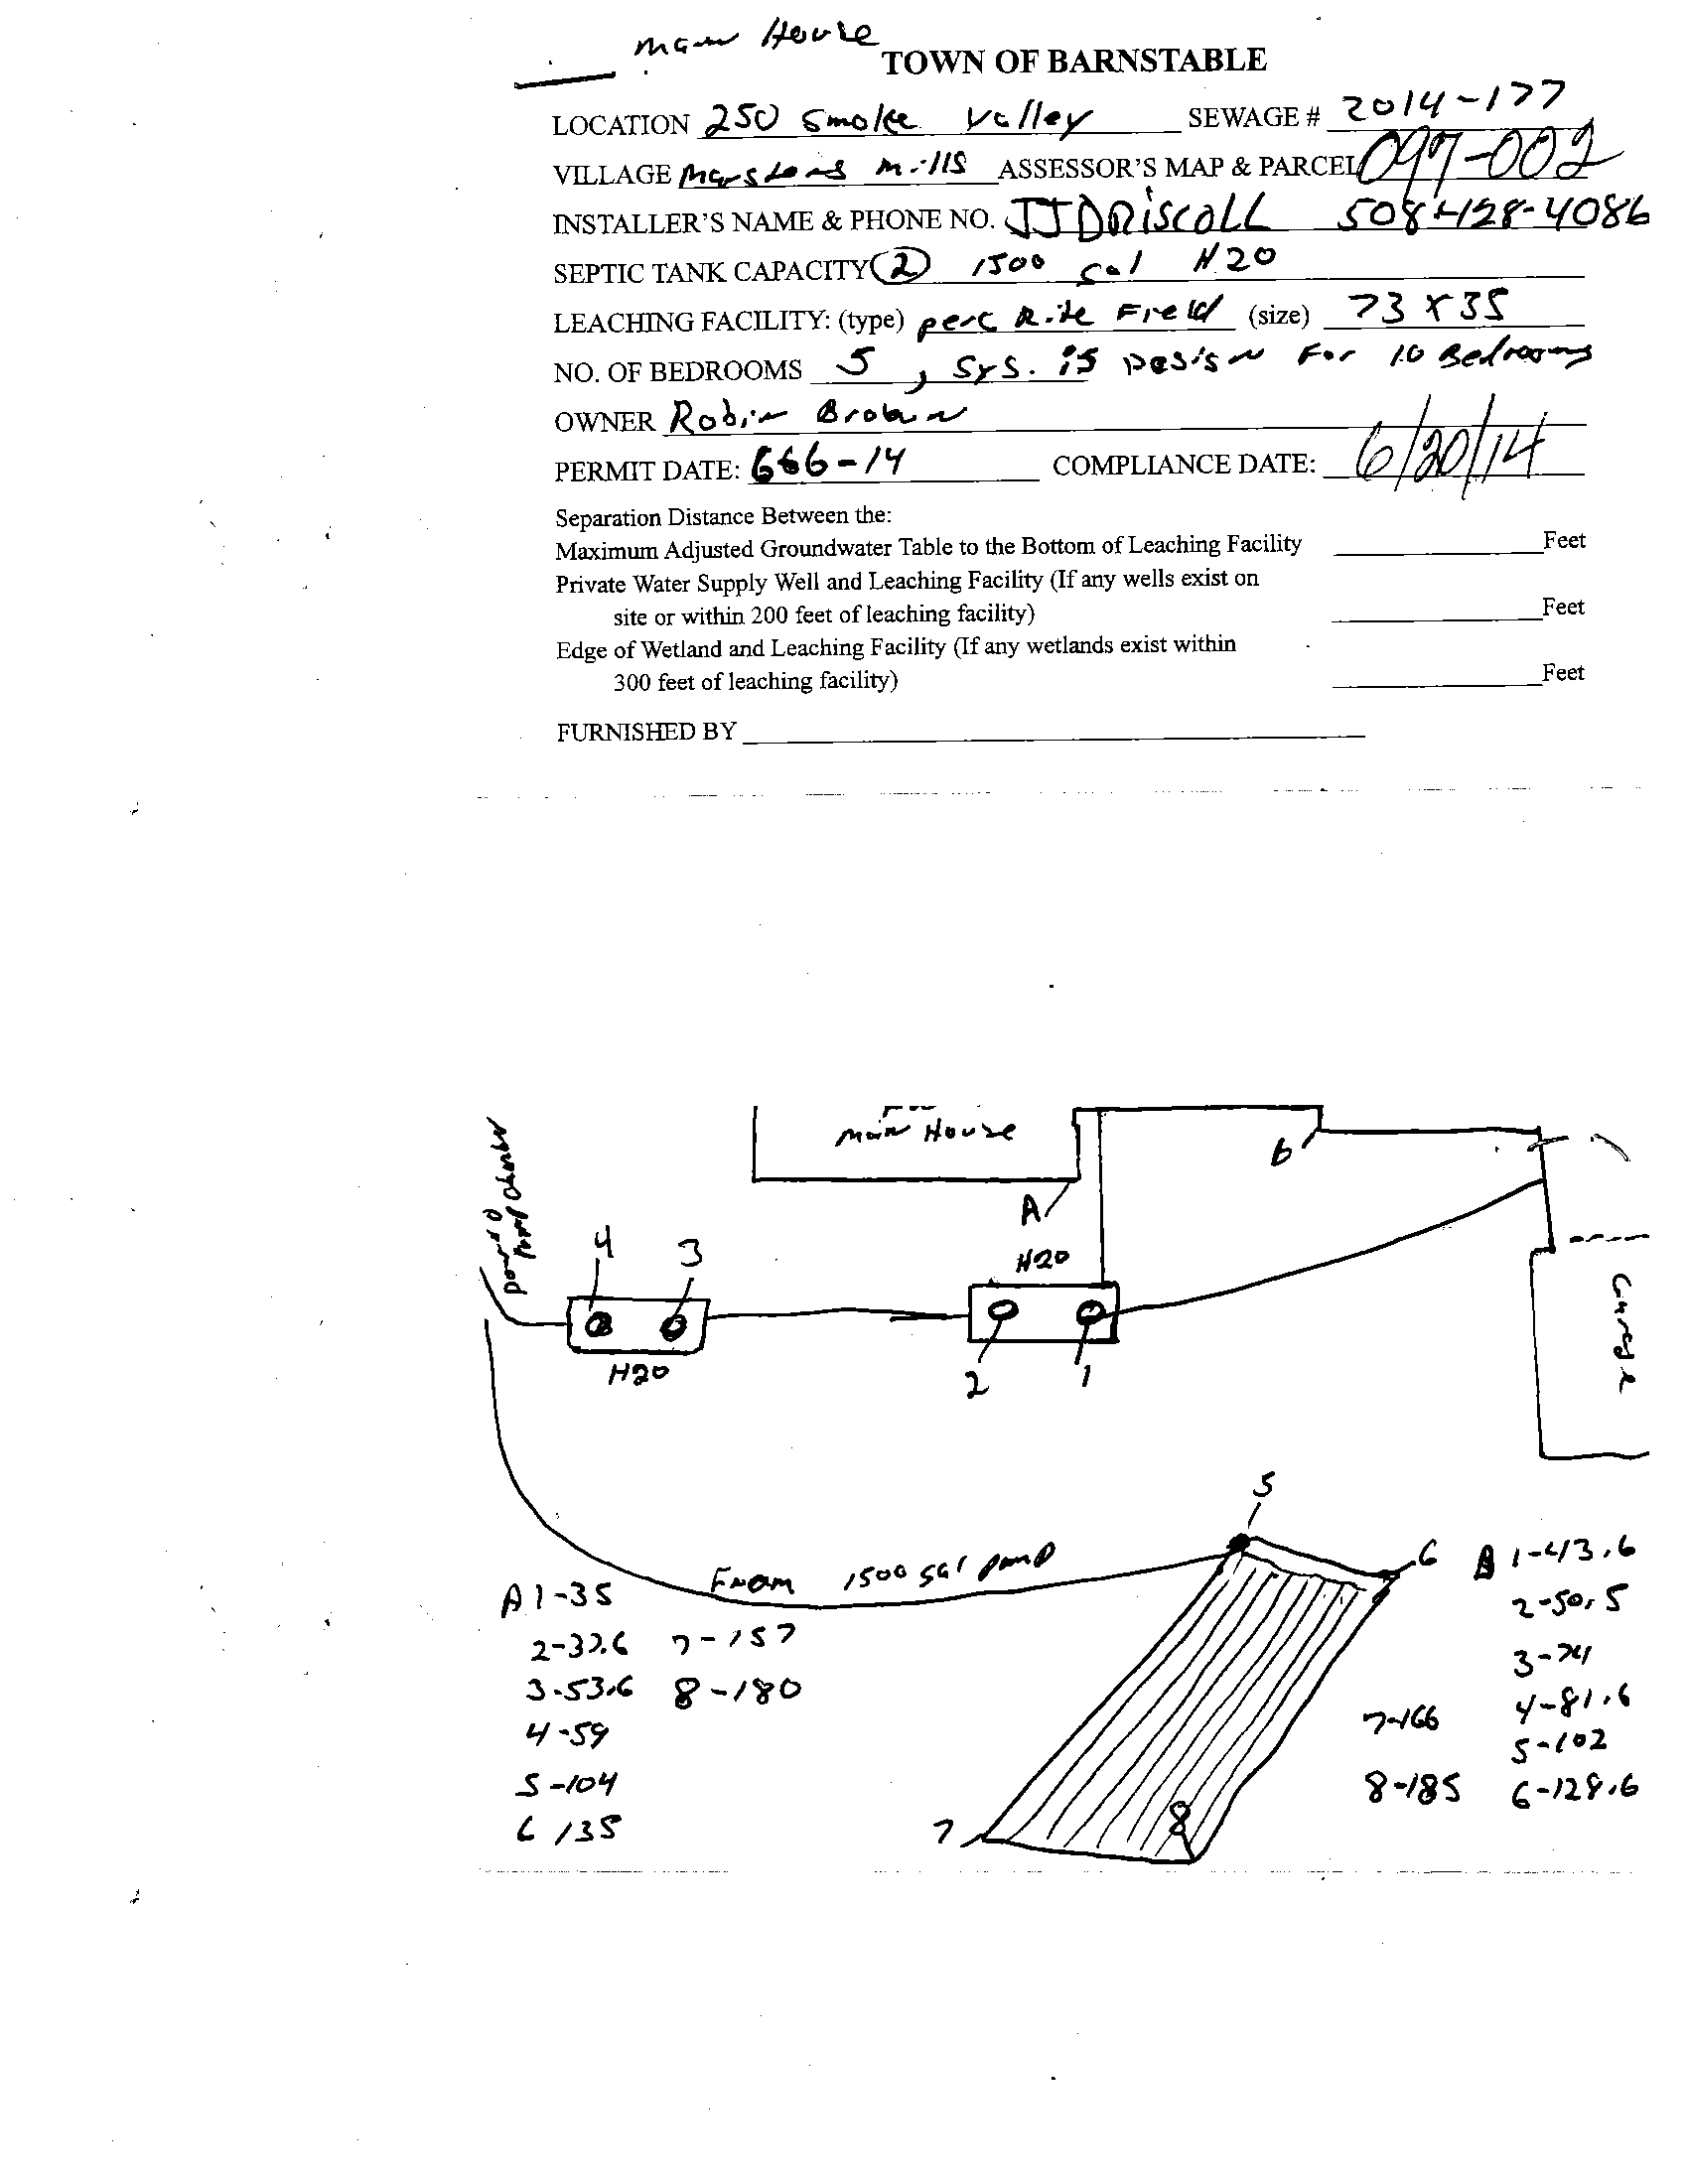 Main House
TOWN OF BARNSTABLE
LOCATION 250 Smoke Valley SEWAGE # 2014-177
VILLAGE Marstons Mills ASSESSOR'S MAP & PARCEL 097-002
INSTALLER'S NAME & PHONE NO. JJDRiscoLL 508-428-4086
SEPTIC TANK CAPACITY (2) 1500 Gal H20
LEACHING FACILITY: (type) perc Rite Field (size) 73 x 35
NO. OF BEDROOMS 5, Sys. is Design For 10 Bedrooms
OWNER Robin Brown
PERMIT DATE: 6-14 COMPLIANCE DATE: 6/20/14
Separation Distance Between the:
Maximum Adjusted Groundwater Table to the Bottom of Leaching Facility Feet
Private Water Supply Well and Leaching Facility (If any wells exist on
site or within 200 feet of leaching facility) Feet
Edge of Wetland and Leaching Facility (If any wetlands exist within
300 feet of leaching facility) Feet
FURNISHED BY
Main House
B
A
4 3
H20
H20
2 1
Garage
5
6
From 1500 gal pump
7
8
A 1-35
2-37.6 7-157
3-53.6 8-180
4-59
5-104
6 135
B 1-43.6
2-50.5
3-74
4-81.6
7-166
5-102
8-185 6-128.6